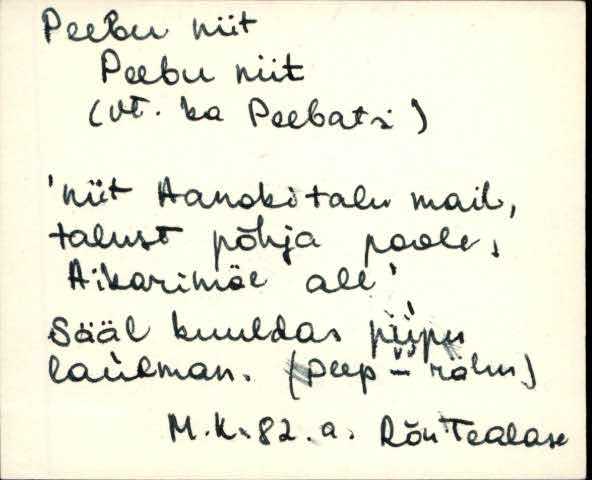 Peebu niit
Peebu niit
(vt. ka Peebatsi)
'niit Aanoki talu mail,
talust põhja poole,
Aikarimäe all'
Sääl kuuldas piipu
laulman. (peep – rähn)
M.K. 82.a. Rõu Tealase